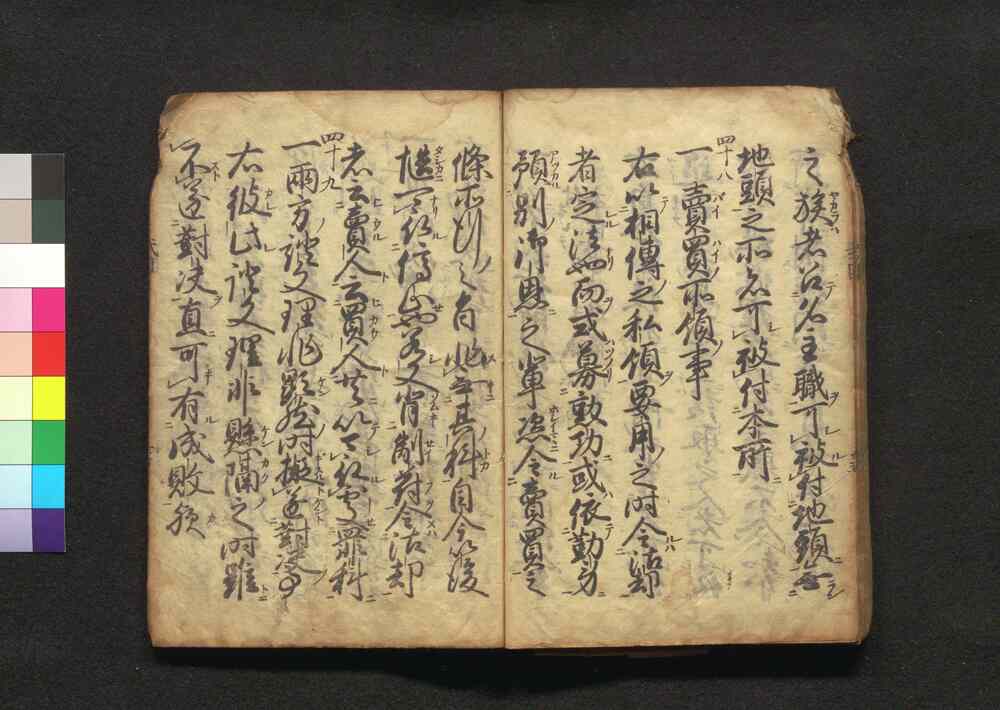 之族者召名主職可被付地頭無
地頭之所者可被付本所
四十八
一賣買所領事
右以相傳之私領要用之時令沽却
者定法也而或募勲功或依勤労
預別御恩之輩恣令賣買之
條所行之旨非無其科自今以後
慥可被停止若又背制符令沽却
者云賣人云買人共以可被處罪科
四十九
一兩方證文理非顯然時擬遂對决事
右彼此證文理非懸隔之時雖
不遂對决直可有成敗歟